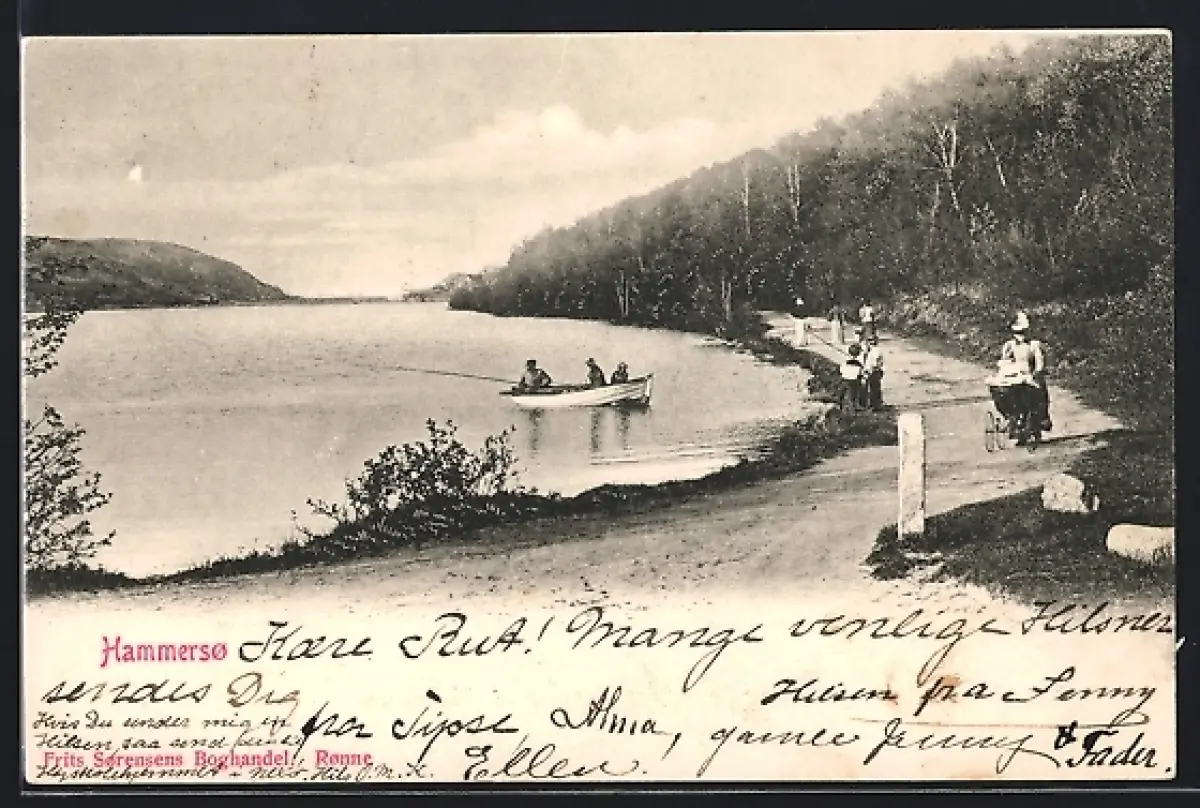 Hammersø Kære Rut! Mange venlige Hilsner
sendes Dig
fra Tipse, Alma, gamle Jenny & Fader.
Ellen.
Hilsen fra Jenny
Hvis Du sender mig en
Hilsen, saa send
Frits Sørensens Boghandel, Rønne